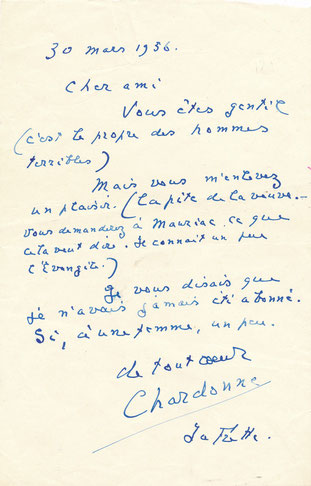 30 mars 1956.
Cher ami
Vous êtes gentil
(c'est le propre des hommes
terribles)
Mais vous m'enlevez
un plaisir. (La pite de la veuve.—
vous demanderez à Mauriac ce que
cela veut dire. Il connait un peu
l'Evangile.)
Je vous disais que
je n'avais jamais été abonné.
Si, à une femme, un peu.
de tout coeur
Chardonne
La Frette.